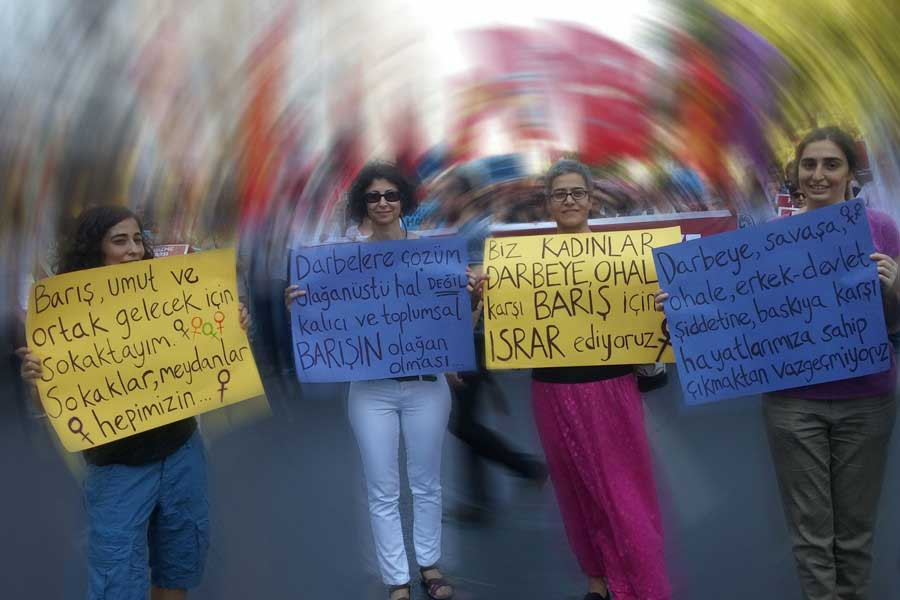 Barış, umut ve
ortak gelecek için
sokaktayım.
Sokaklar, meydanlar
hepimizin...
Darbelere çözüm
olağanüstü hal DEĞİL
kalıcı ve toplumsal
BARIŞIN olağan
olması...
BİZ KADINLAR
DARBEYE, OHAL
karşı BARIŞ için
ISRAR ediyoruz
Darbeye, savaşa,
ohale, erkek-devlet
şiddetine, baskıya karşı
hayatlarımıza sahip
çıkmaktan vazgeçmiyoruz